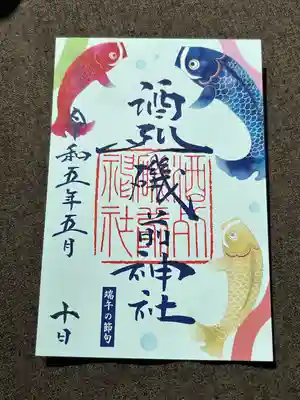 酒列磯前神社
酒列磯前神社
端午の節句
令和五年五月
十日